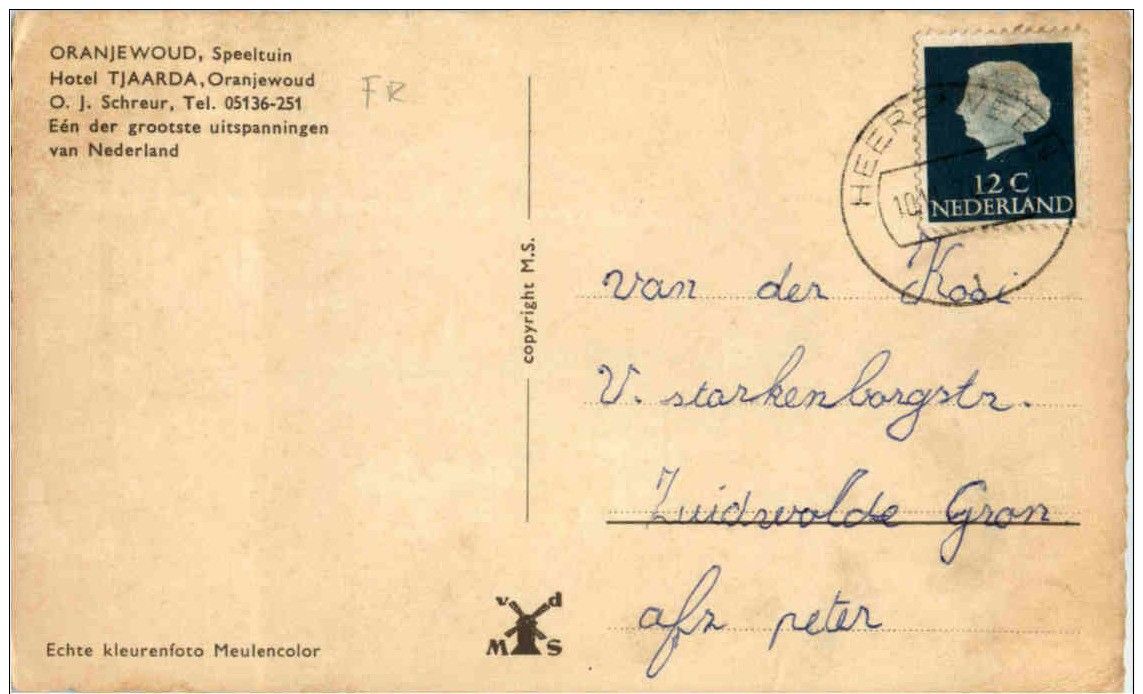 ORANJEWOUD, Speeltuin
Hotel TJAARDA, Oranjewoud
O. J. Schreur, Tel. 05136-251
Eén der grootste uitspanningen
van Nederland
FR
HEERENVEEN
10
12 C
NEDERLAND
copyright M.S.
van der Kooi
V. starkenborgstr.
Zuidwolde Gron.
afz peter
v d
M S
Echte kleurenfoto Meulencolor